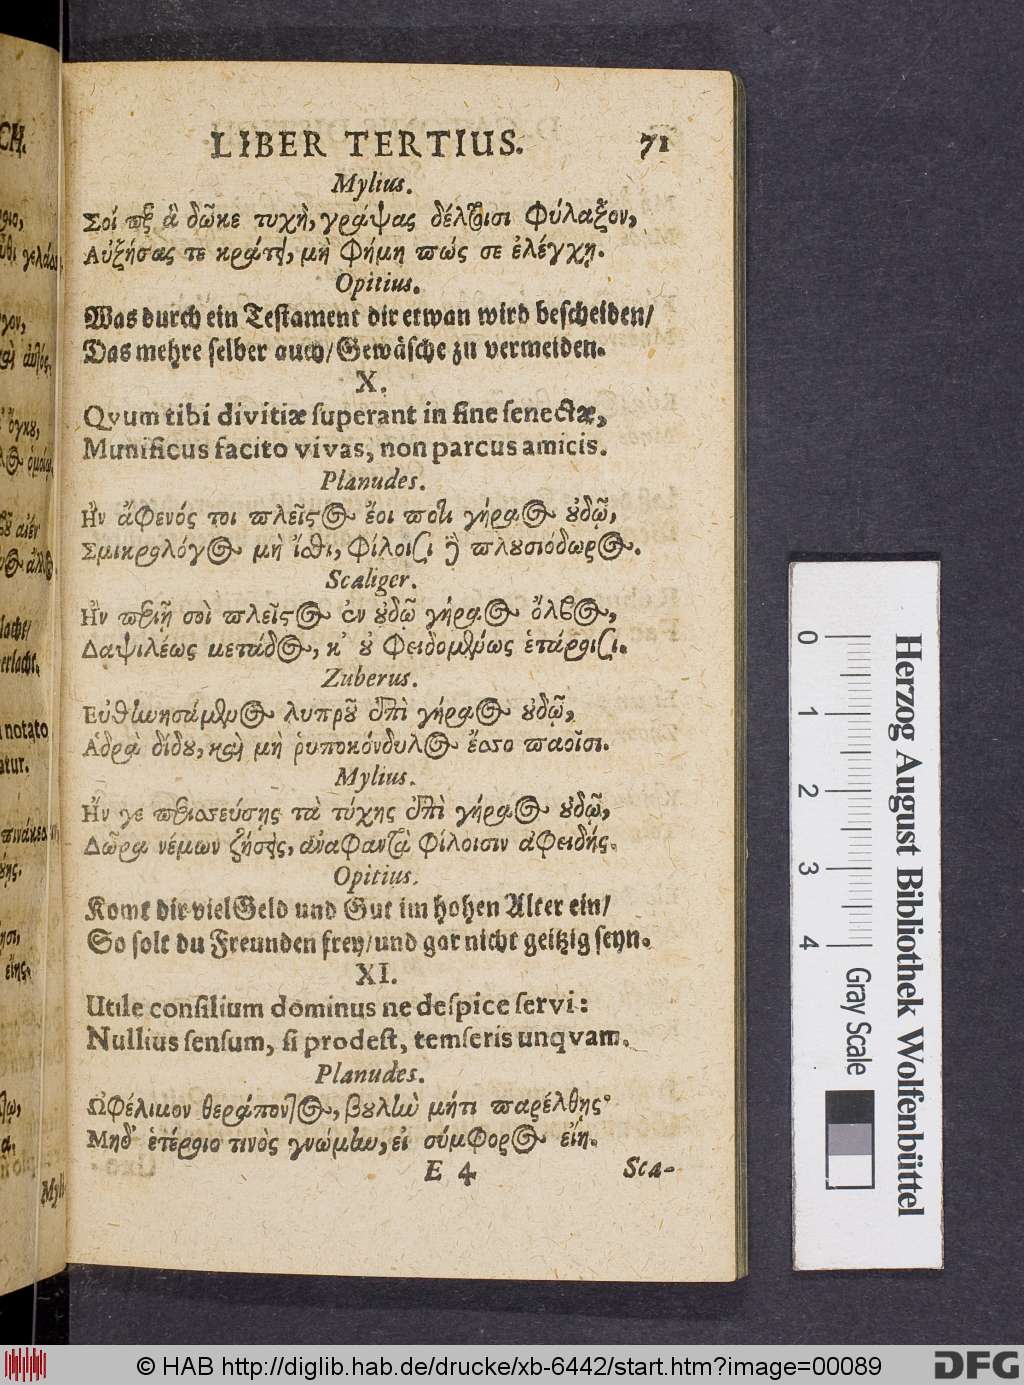 LIBER TERTIUS. 71
Mylius.
Σοί περ ἃ δῶκε τυχὴ, γράψας δέλτοισι φύλαξον,
Αὐξήσας τε κράτει, μὴ φήμη πώς σε ἐλέγχῃ.
Opitius.
Was durch ein Testament dir etwan wird bescheiden/
Das mehre selber auch/ Gewäsche zu vermeiden.
X.
Qvum tibi divitiæ ſuperant in fine ſenectæ,
Munificus facito vivas, non parcus amicis.
Planudes.
Ἢν ἄφενός τοι πλεῖστον ἔοι ποτὶ γήραος οὐδῷ,
Σμικρολόγος μὴ ἴσθι, φίλοισι δὲ πλουσιόδωρος.
Scaliger.
Ἢν περιῇ σοὶ πλεῖστος ἐν οὐδῷ γήραος ὄλβος,
Δαψιλέως μετάδος, κ' οὐ φειδομένως ἑτάροισι.
Zuberus.
Εὐθηνησάμενος λυπροῦ ἐπὶ γήραος οὐδῷ,
Ἁδρὰ δίδου, καὶ μὴ ῥυποκόνδυλος ἔσσο παοῖσι.
Mylius.
Ἢν γε περισσεύσῃς τὰ τύχης ἐπὶ γήραος οὐδῷ,
Δῶρα νέμων ζήσεις, ἀναφαντὰ φίλοισιν ἀφειδής.
Opitius.
Komt dir viel Geld und Gut im hohen Alter ein/
So solt du Freunden frey/ und gar nicht geitzig seyn.
XI.
Utile conſilium dominus ne deſpice ſervi:
Nullius ſenſum, ſi prodeſt, temſeris unqvam.
Planudes.
Ὠφέλιμον θεράποντος, βουλὴν μήτι παρέλθῃς·
Μηδ' ἑτέροιο τινὸς γνώμην, εἰ σύμφορος εἴη.
E 4 Sca-
CH.
notato
atur.
Herzog August Bibliothek Wolfenbüttel
0 1 2 3 4
Gray Scale
© HAB http://diglib.hab.de/drucke/xb-6442/start.htm?image=00089
DFG